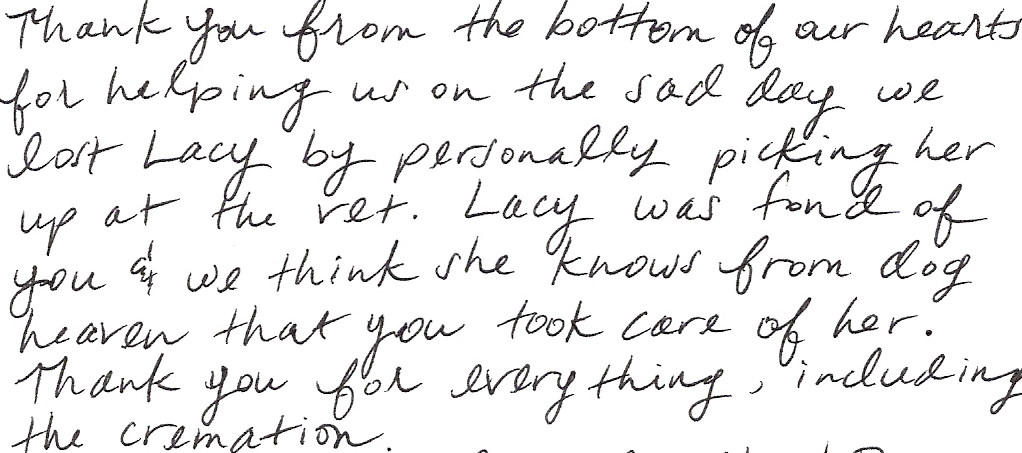 Thank you from the bottom of our hearts
for helping us on the sad day we
lost Lacy by personally picking her
up at the vet. Lacy was fond of
you & we think she knows from dog
heaven that you took care of her.
Thank you for everything, including
the cremation.